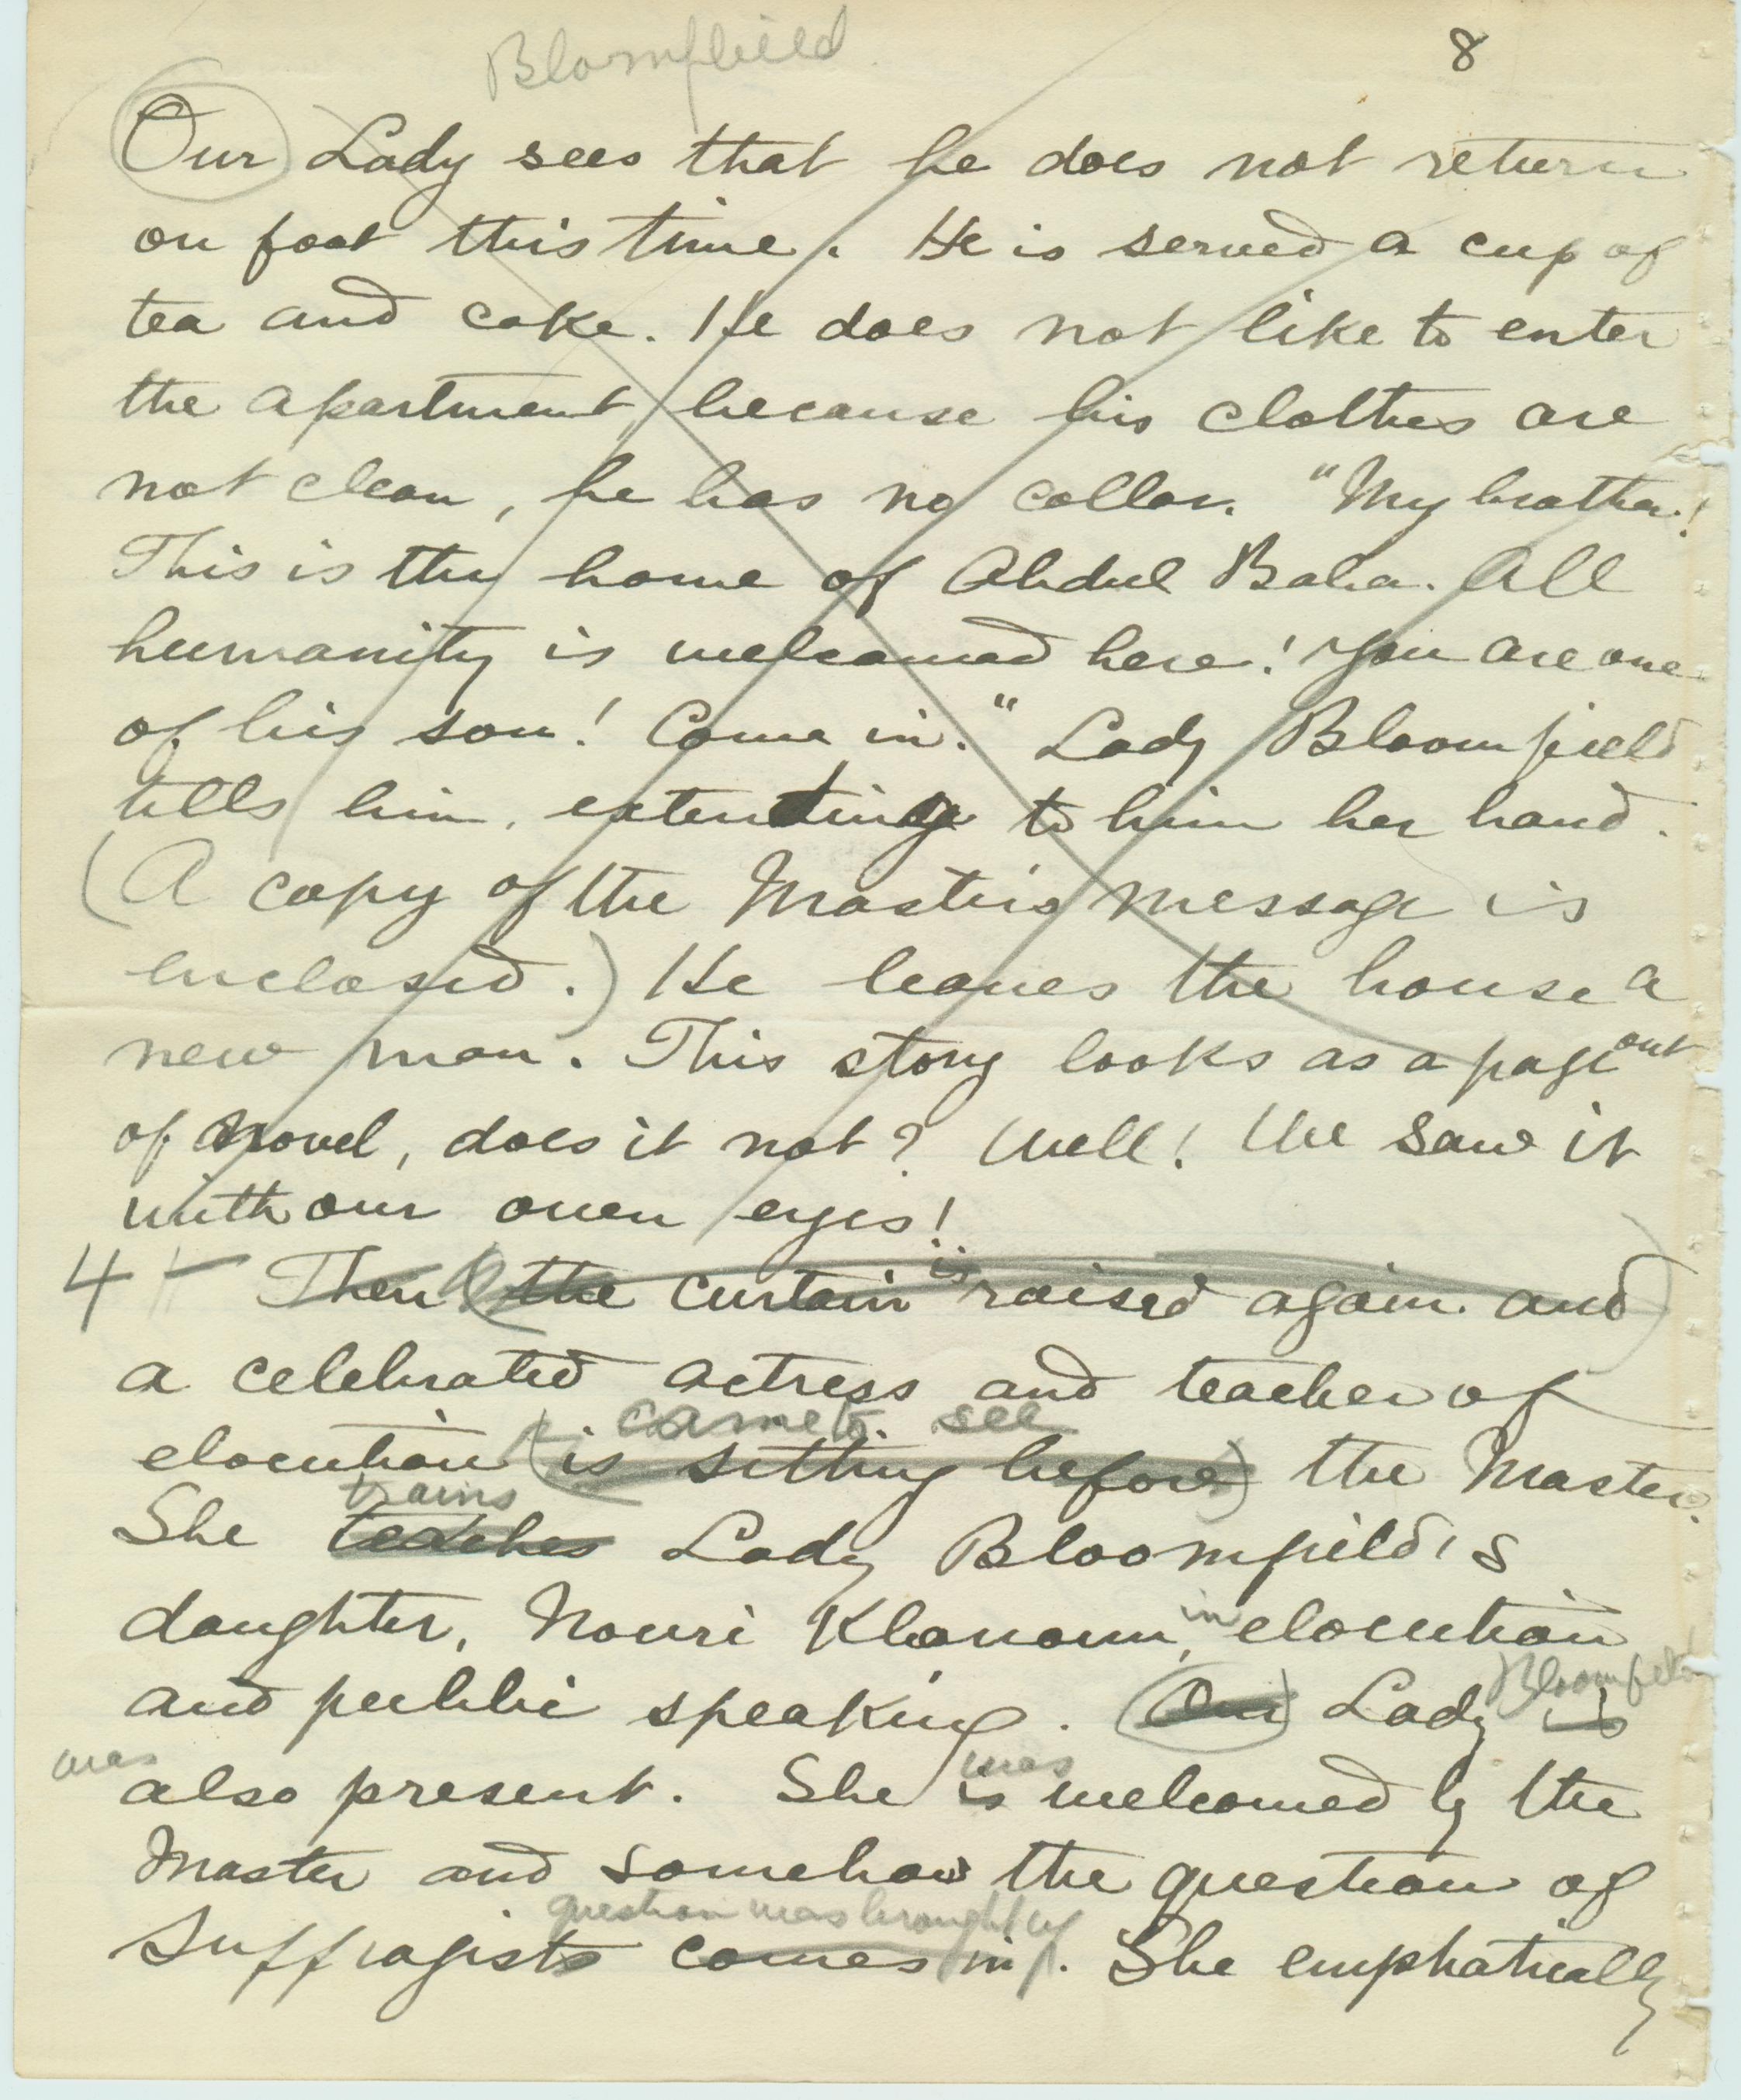 Bloomfield
8
Our Lady sees that he does not return
on foot this time. He is served a cup of
tea and cake. He does not like to enter
the apartment, because his clothes are
not clean, he has no collar. "My brother!
This is the home of Abdul Baha. All
humanity is welcomed here! You are one
of his son! Come in." Lady Bloomfield
tells him, extending to him her hand.
(A copy of the Master's message is
enclosed.) He leaves the house a
new man. This story looks as a page out
of novel, does it not? Well! We saw it
with our own eyes!
4 Then (the curtain is raised again and)
a celebrated actress and teacher of
came to see
elocution (is sitting before) the Master.
trains
She teaches Lady Bloomfield's
daughter, Nouri Khanoum, in elocution
and public speaking. (Our) Lady Bloomfield is
was also present. She is was welcomed by the
Master and somehow the question of
question was brought up
Suffragists comes in. She emphatically